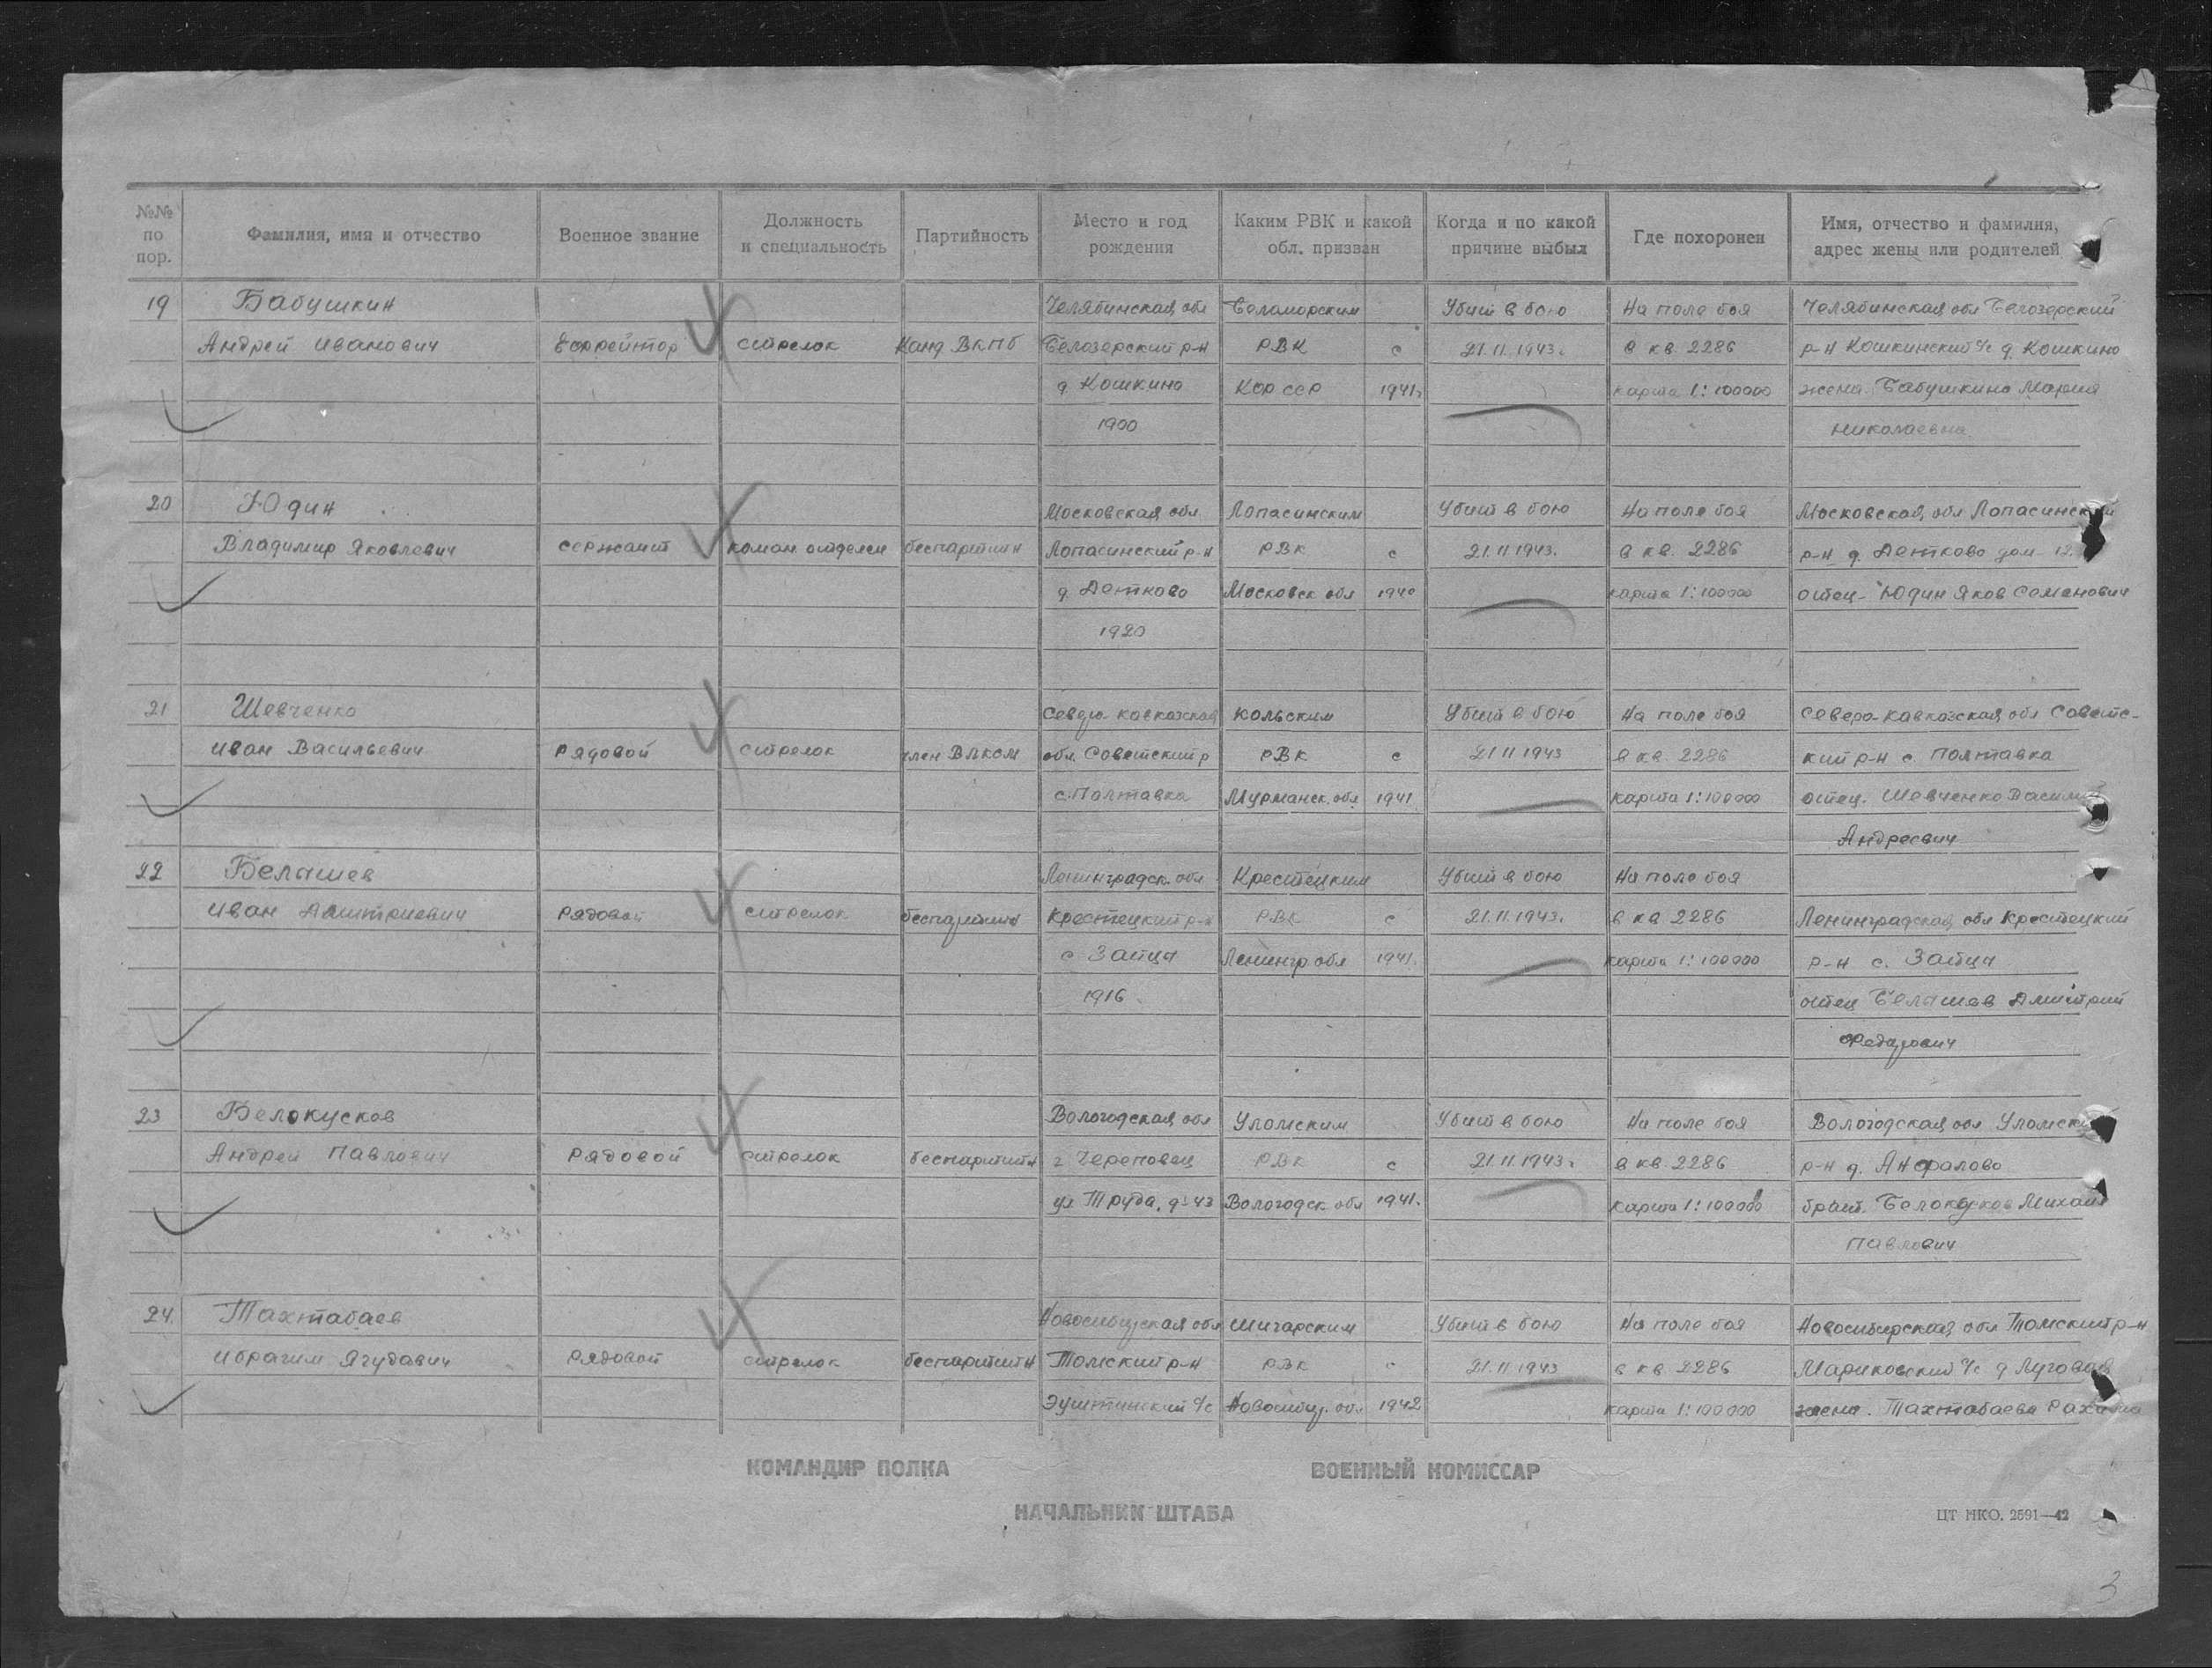 №№ по пор. Фамилия, имя и отчество Военное звание Должность и специальность Партийность Место и год рождения Каким РВК и какой обл. призван Когда и по какой причине выбыл Где похоронен Имя, отчество и фамилия, адрес жены или родителей
19 Бабушкин Челябинская обл Беломорским Убит в бою На поле боя Челябинская обл Белозерский
Андрей Иванович Ефрейтор стрелок Канд ВКПб Белозерский р-н РВК с 21.11.1943г в кв. 2286 р-н Кошкинский с/с д. Кошкино
д. Кошкино КФССР 1941г карта 1:100000 жена Бабушкина Мария
1900 Николаевна
20 Юдин Московская обл. Лопасинским Убит в бою На поле боя Московская обл Лопасинский
Владимир Яковлевич сержант коман отделен беспартийн Лопасинский р-н РВК с 21.11.1943. в кв. 2286 р-н д. Детково дом 12
д. Детково Московск обл 1940 карта 1:100000 отец - Юдин Яков Семенович
1920
21 Шевченко Северо-кавказская Кольским Убит в бою На поле боя Северо-кавказская обл Советс-
Иван Васильевич Рядовой стрелок член ВЛКСМ обл. Советский р РВК с 21 11 1943 в кв. 2286 кий р-н с. Полтавка
с. Полтавка Мурманск. обл 1941 карта 1:100000 отец. Шевченко Василий
Андреевич
22 Белашев Ленинградск. обл Крестецким Убит в бою На поле боя
Иван Дмитриевич Рядовой стрелок беспартийн Крестецкий р-н РВК с 21.11.1943. в кв 2286 Ленинградская обл Крестецкий
с Зайца Ленингр. обл 1941. карта 1:100000 р-н с. Зайца
1916 отец Белашев Дмитрий
Федорович
23 Белокусков Вологодская обл Уломским Убит в бою На поле боя Вологодская обл Уломский
Андрей Павлович Рядовой стрелок беспартийн г Череповец РВК с 21.11.1943г в кв. 2286 р-н д. Анфалово
ул Труда, д-43 Вологодск обл 1941. карта 1:100000 брат. Белокусков Михаил
Павлович
24 Тахтабаев Новосибирская обл Шигарским Убит в бою На поле боя Новосибирская обл Томский р-н
Ибрагим Ягудавич Рядовой стрелок беспартийн Томский р-н РВК с 21.11.1943 в кв 2286 Мариковский с/с д Луговая
Эуштинский с/с Новосибир. обл 1942 карта 1:100000 жена. Тахтабаева
КОМАНДИР ПОЛКА ВОЕННЫЙ КОМИССАР
НАЧАЛЬНИК ШТАБА ЦТ НКО. 2591—42
3